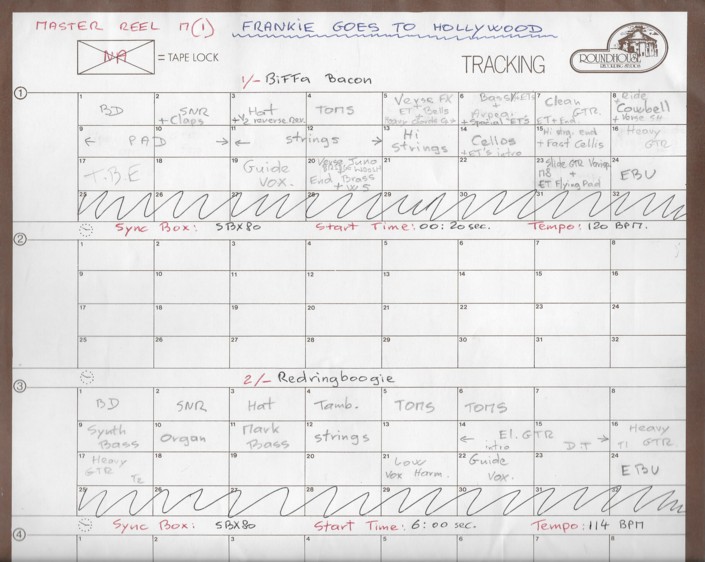 MASTER REEL M(1) FRANKIE GOES TO HOLLYWOOD
NA = TAPE LOCK
TRACKING
ROUNDHOUSE
RECORDING STUDIOS
1/- Biffa Bacon
1
1 BD
2 SNR + Claps
3 Hat +½ reverse Rev
4 TOMS
5 Verse FX ET + Bells
6 Bass/ + Arpeg. + Special ET's
7 Clean GTR. ET + End
8 Ride + Cowbell + Verse
9 ← PAD
10 →
11 ← strings
12
13 → Hi strings
14 Cellos + ET's intro
15 Hi strg. end + Fast Cellis
16 Heavy GTR
17 T.B.E
18
19 Guide VOX.
20 Verse Juno End Brass + W.S
21
22
23 Slide GTR + ET Flying Pad
24 EBU
25 26 27 28 29 30 31 32
Sync Box: SBX80 Start Time: 00:20 sec. Tempo: 120 BPM.
2
1 2 3 4 5 6 7 8
9 10 11 12 13 14 15 16
17 18 19 20 21 22 23 24
25 26 27 28 29 30 31 32
2/- Redringboogie
3
1 BD
2 SNR
3 Hat
4 Tamb.
5 TOMS
6 TOMS
7
8
9 Synth Bass
10 Organ
11 Mark Bass
12 strings
13
14 ← intro
15 El. GTR D.T →
16 Heavy T1 GTR.
17 Heavy GTR T2
18
19
20
21 Low Vox Harm.
22 Guide Vox.
23
24 EBU
25 26 27 28 29 30 31 32
Sync Box: SBX80 Start Time: 6:00 sec. Tempo: 114 BPM
4
1 2 3 4 5 6 7 8